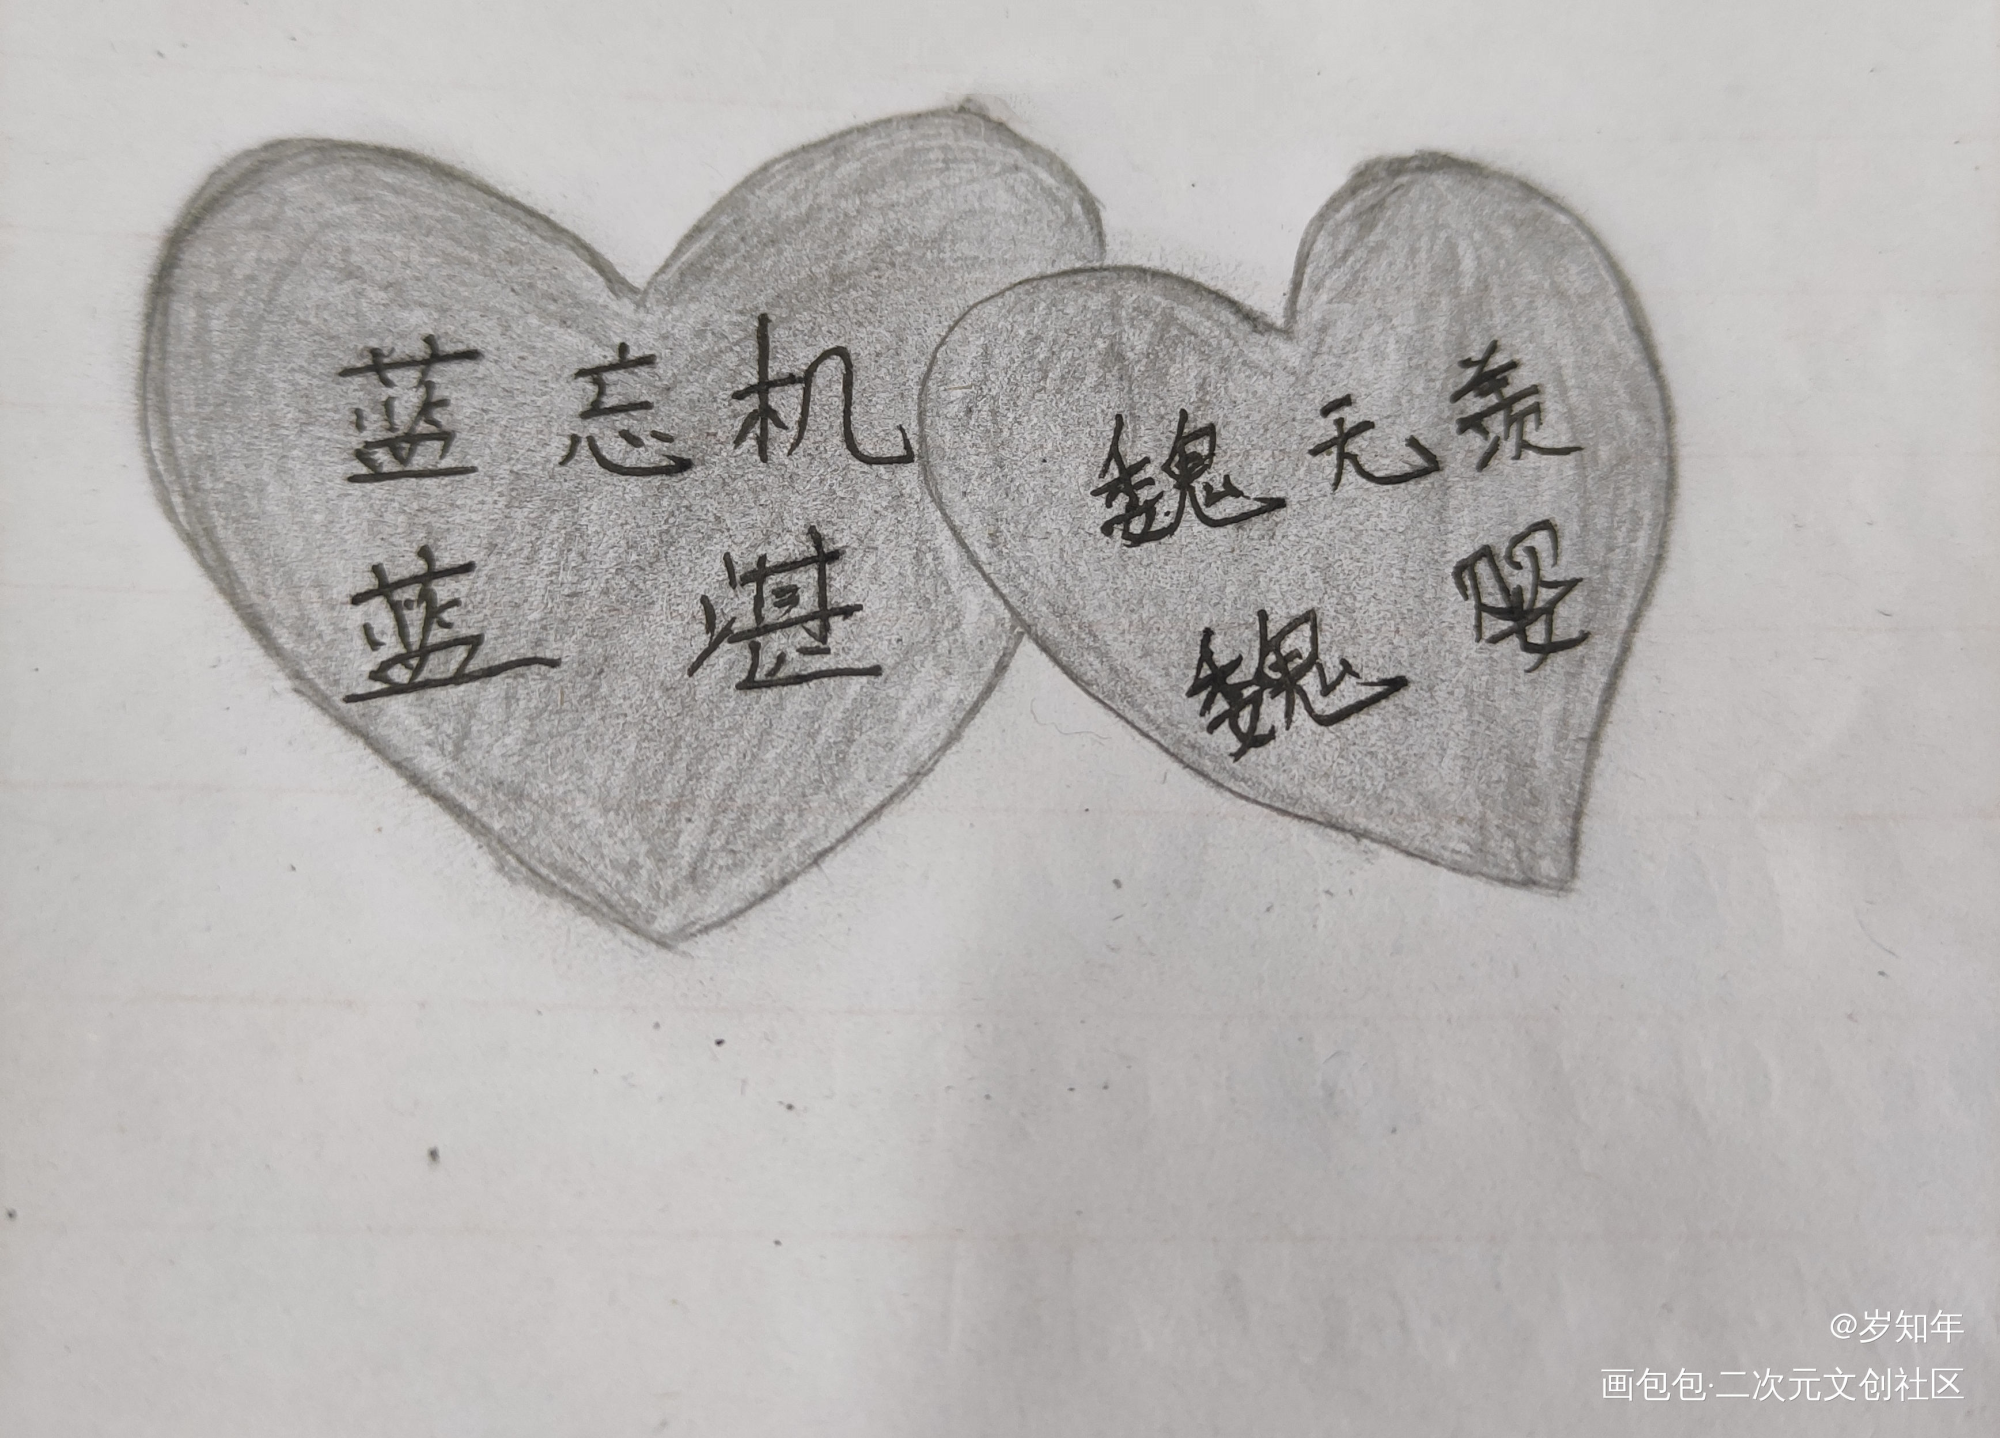 蓝忘机
蓝湛
魏无羡
魏婴
@岁知年
画包包·二次元文创社区